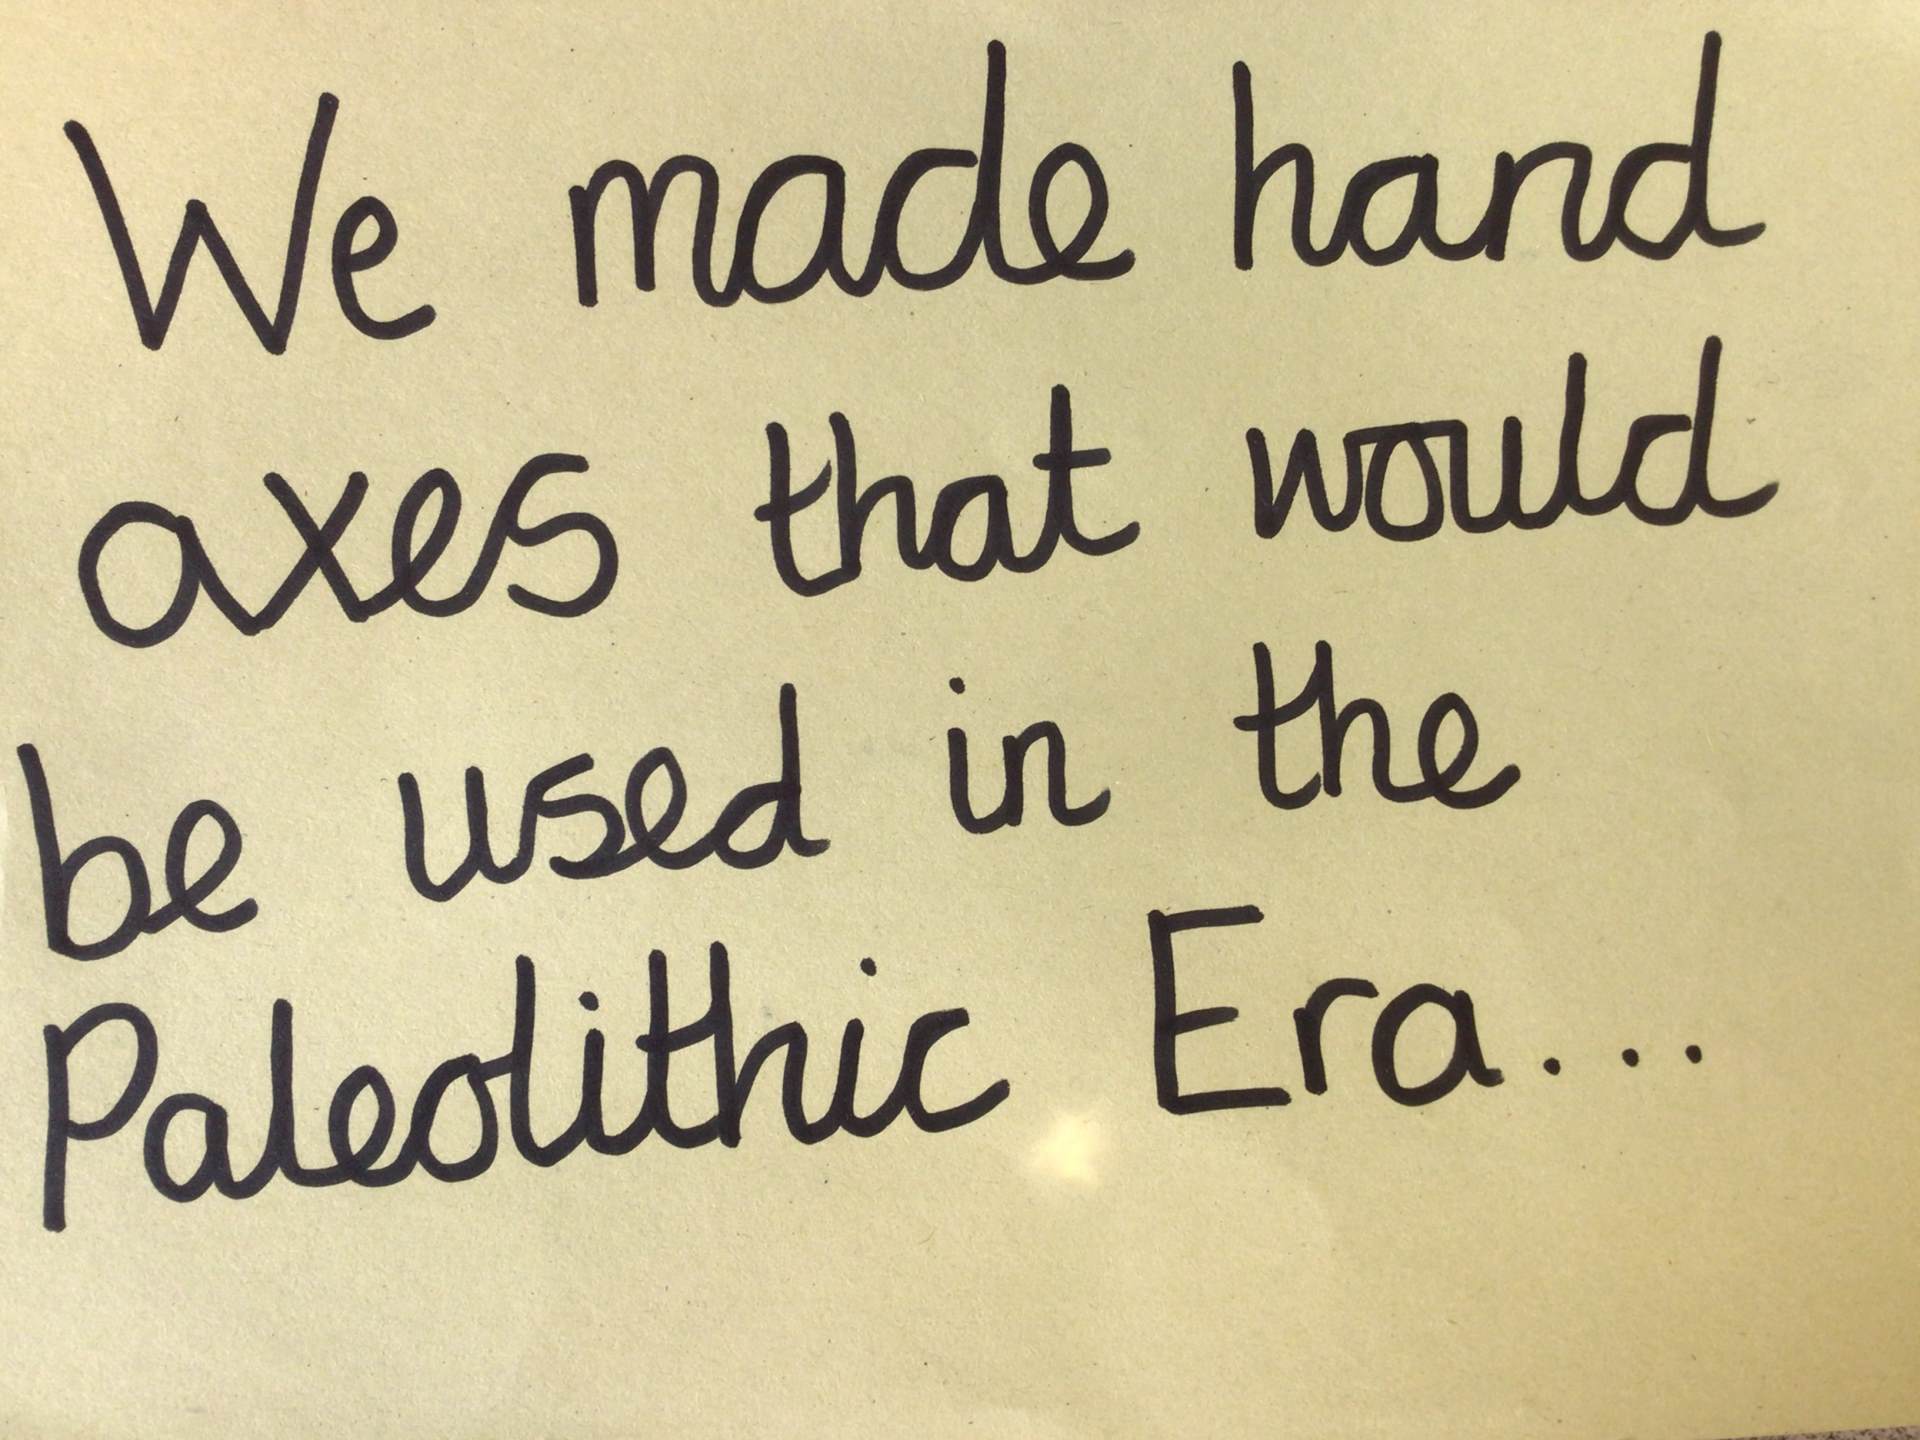 We made hand
axes that would
be used in the
Paleolithic Era...